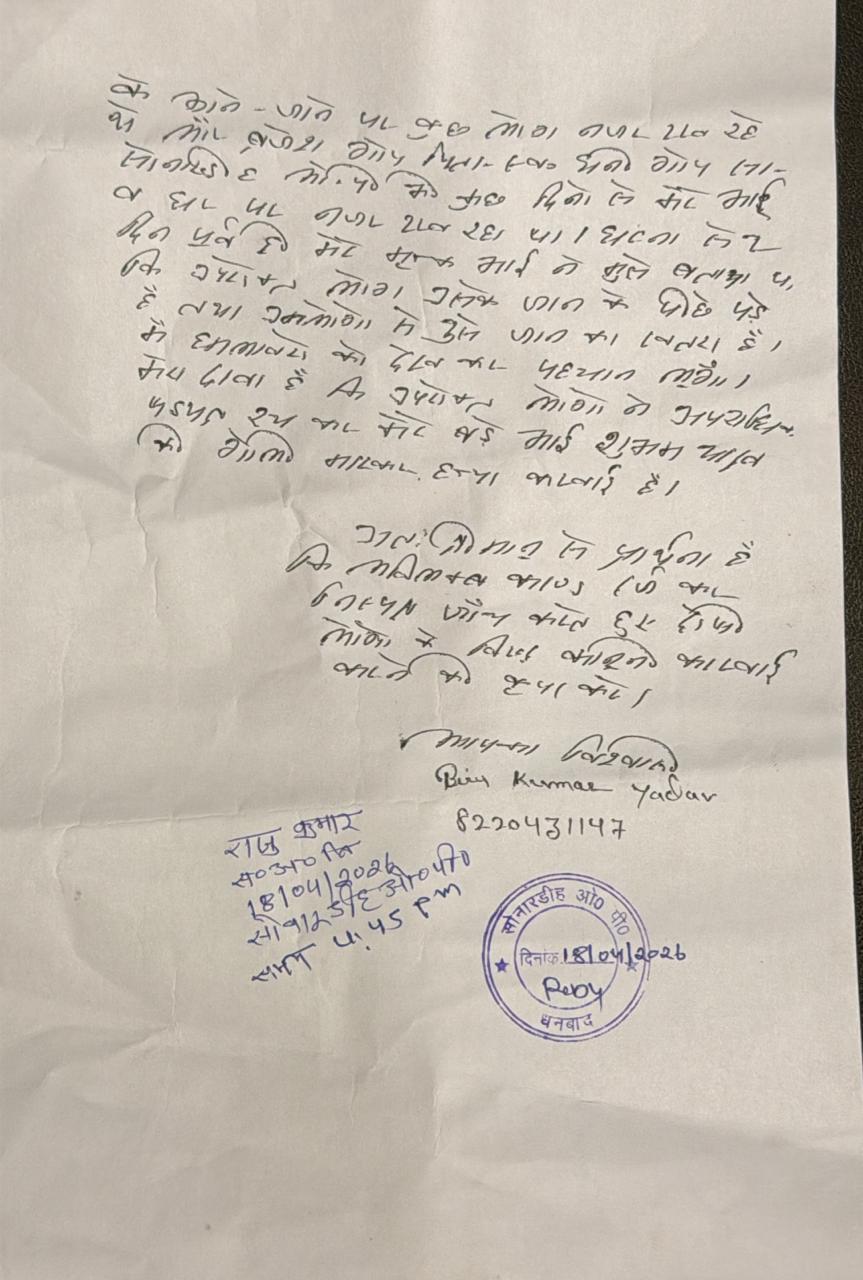 के आने-जाने पर कुछ लोग नजर रख रहे
थे और ब्रजेश गोप पिता-स्व० घनी गोप सा०-
सोनारडीह ओ०पी० भी कुछ दिनो से मेरे भाई
व घर पर नजर रख रहा था। घटना से २
दिन पूर्व ही मेरे मृतक भाई ने मुझे बताया था
कि उपरोक्त लोग उसके जान के पीछे पड़े
है तथा उनलोगो से उसे जान का खतरा है।
मै हमलावरो को देख कर पहचान लूँगा।
मेरा दावा है कि उपरोक्त लोगो ने अपराधिक
षडयंत्र रच कर मेरे बड़े भाई शुभम यादव
की गोली मारकर हत्या करवाई है।
अतः श्रीमान् से प्रार्थना है
कि अविलम्ब काण्ड दर्ज कर
निष्पक्ष जाँच करते हुए दोषी
लोगो के विरुद्ध कानूनी कारवाई
करने की कृपा करे।
आपका विश्वासी
Kumar Yadav
8220431147
राजु कुमार
स०अ०नि
18/04/2026
सोनारडीह ओ०पी०
समय 4:45 pm
सोनारडीह ओ० पी०
दिनांक 18/04/2026
धनबाद